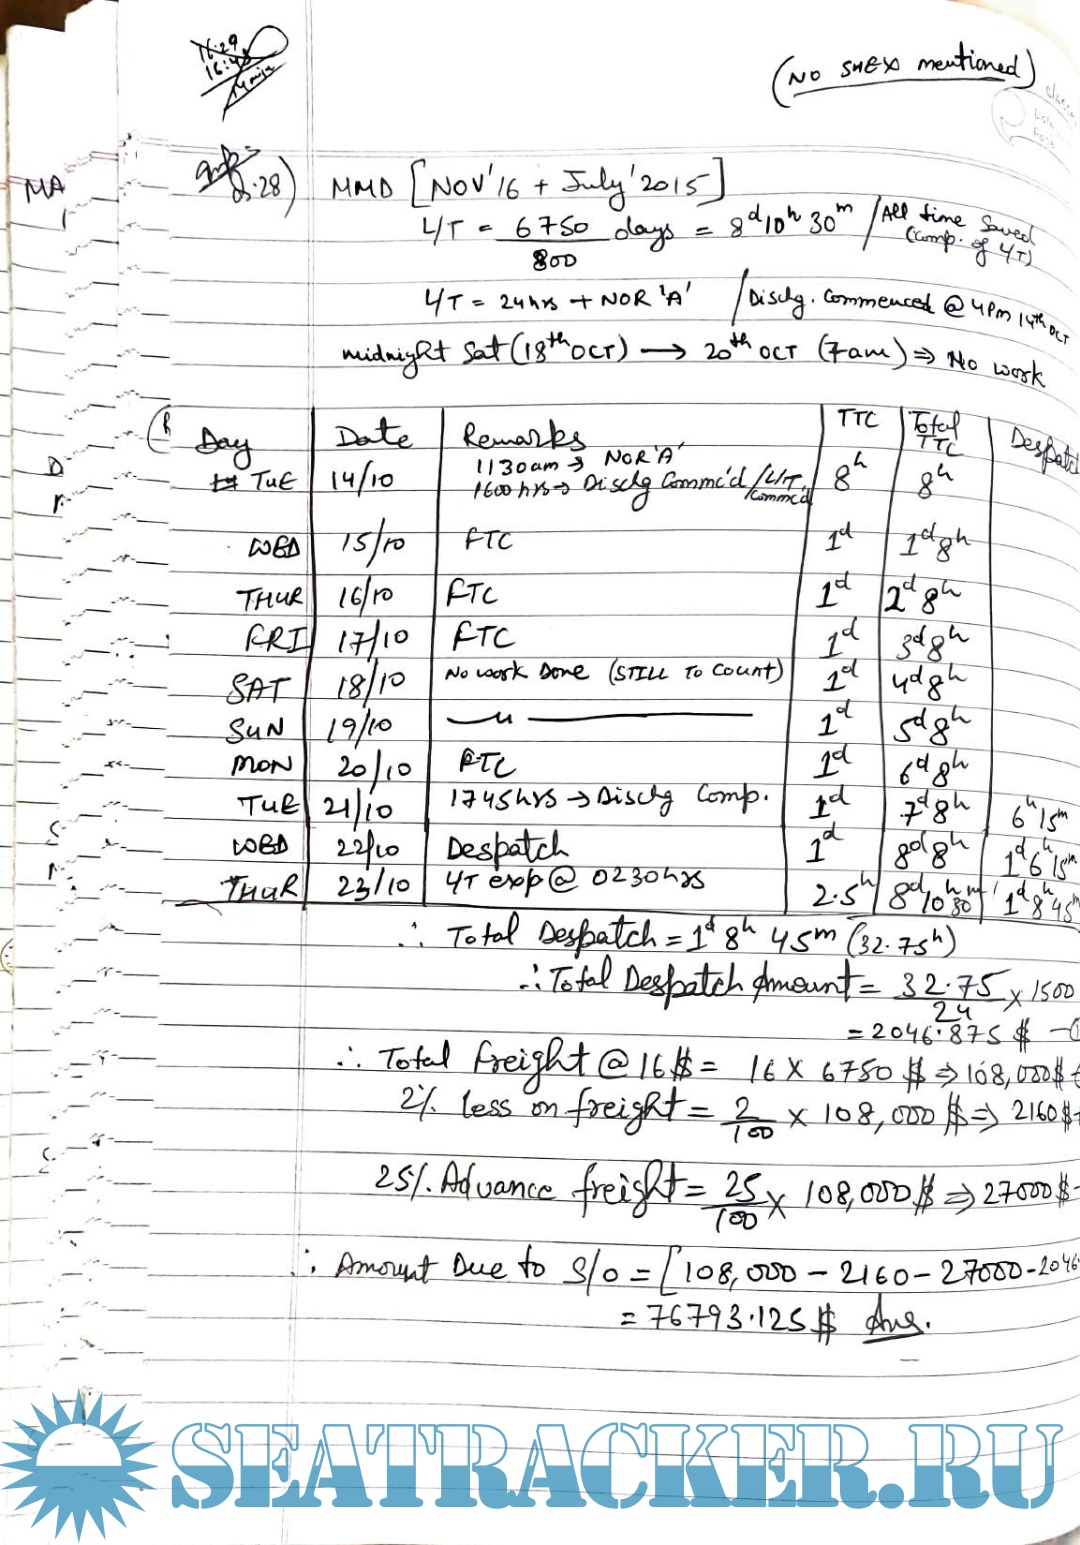 16:29
16:43
14 min
(NO SHEX mentioned)
MA
Q.28) MMD [NOV'16 + July'2015]
L/T = 6750/800 days = 8d10h30m / All time saved (Comp. of L/T)
L/T = 24hrs + NOR 'A' / Dischg. Commenced @ 4pm 14th OCT
midnight Sat (18th OCT) → 20th OCT (7am) ⇒ No work
Day Date Remarks TTC Total TTC Despatch
TUE 14/10 1130am → NOR 'A' 1600hrs → Dischg Commc'd / L/T Commc'd 8h 8h
WED 15/10 FTC 1d 1d8h
THUR 16/10 FTC 1d 2d8h
FRI 17/10 FTC 1d 3d8h
SAT 18/10 No work Done (STILL TO COUNT) 1d 4d8h
SUN 19/10 —〃— 1d 5d8h
MON 20/10 FTC 1d 6d8h
TUE 21/10 1745hrs → Dischg Comp. 1d 7d8h 6h15m
WED 22/10 Despatch 1d 8d8h 1d6h15m
THUR 23/10 L/T exp @ 0230hrs 2.5h 8d10h30m 1d8h45m
∴ Total Despatch = 1d 8h 45m (32.75h)
∴ Total Despatch Amount = 32.75/24 × 1500
= 2046.875 $
∴ Total freight @ 16$ = 16 × 6750 $ ⇒ 108,000$
2% less on freight = 2/100 × 108,000 $ ⇒ 2160$
25% Advance freight = 25/100 × 108,000$ ⇒ 27000$
∴ Amount Due to S/O = [108,000 - 2160 - 27000 - 2046.
= 76793.125 $ Ans.
SEATRACKER.RU